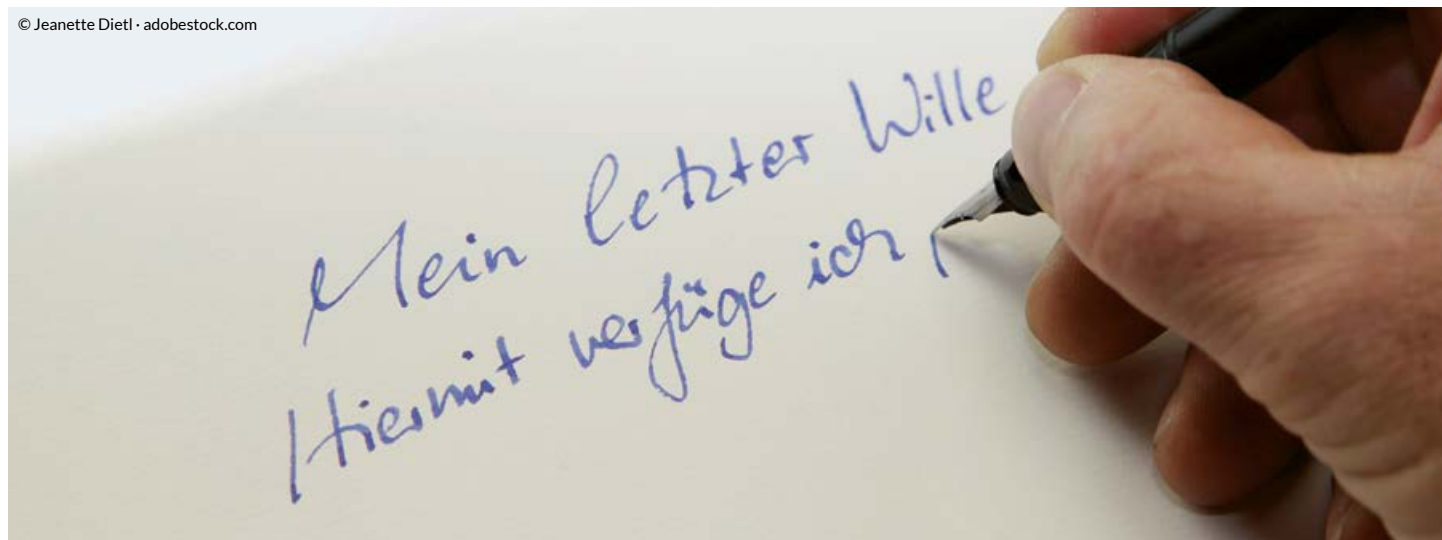 © Jeanette Dietl · adobestock.com
Mein letzter Wille
Hiermit verfüge ich